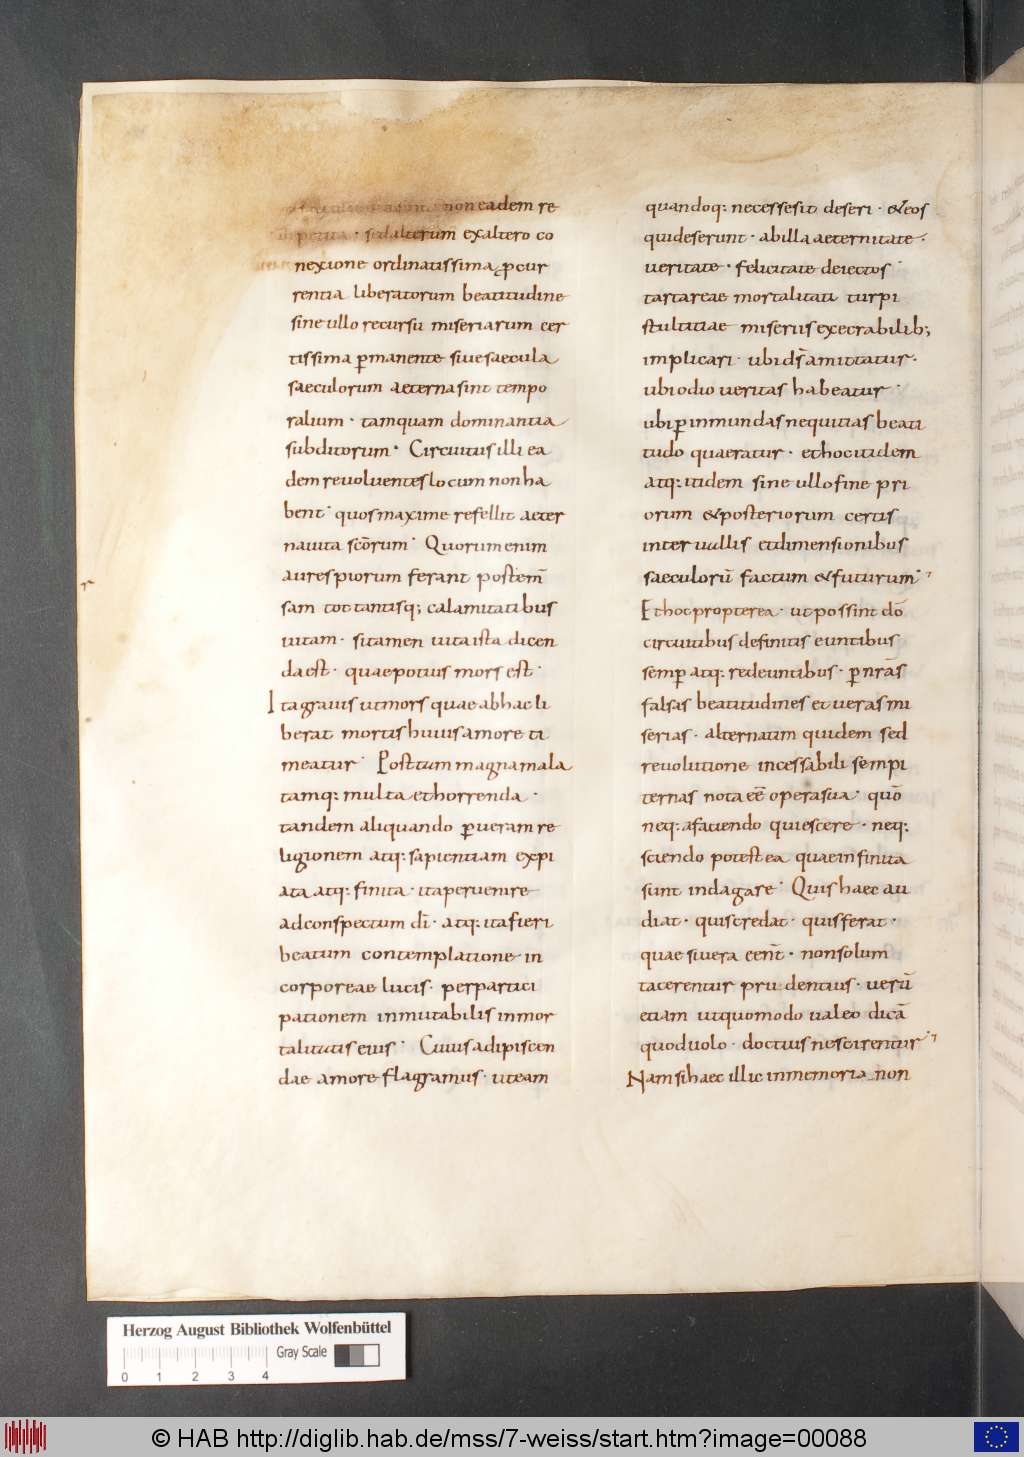 non eadem re
petita · sed alterum ex altero co
nexione ordinatissima ꝓcur
rentia liberatorum beatitudine
sine ullo recursu miseriarum cer
tissima ꝑmanente siue saecula
saeculorum aeterna sint tempo
ralium · tamquam dominantia
subditorum · Circuitus illi ea
dem reuoluentes locum non ha
bent · quos maxime refellit aeter
na uita scōrum · Quorum enim
aures piorum ferant post em̄
sam tot tantisq; calamitatibus
uitam · si tamen uita ista dicen
da est · quae potius mors est ·
Ita grauis ut mors quae ab hac li
berat mortis huius amore ti
meatur · Post tum magna mala
tamq: multa et horrenda ·
tandem aliquando ꝑ ueram re
ligionem atq: sapientiam expi
ata atq: finita · ita peruenire
ad conspectum dī · atq: ita fieri
beatum contemplatione in
corporeae lucis · per partici
pationem inmutabilis inmor
talitatis eius · Cuius adipiscen
dae amore flagramus · ut eam
quandoq: necesse sit deseri · & eos
qui deserunt · ab illa aeternitate ·
ueritate · felicitate deiectos
tartareae mortalitati turpi
stultitiae miseriis execrabilib;
implicari · ubi d̄s amittatur ·
ubi odio ueritas habeatur ·
ubi ꝑ inmundas nequitias beati
tudo quaeratur · et hoc itidem
atq: itidem sine ullo fine pri
orum & posteriorum certis
interuallis et dimensionibus
saeculorū factum & futurum ·
Et hoc propterea · ut possint dō
circuitibus definitis euntibus
semꝑ atq: redeuntibus · ꝑ nrās
falsas beatitudines et ueras mi
serias · alternatim quidem sed
reuolutione incessabili sempi
ternas nota eē opera sua · quō
neq: a faciendo quiescere · neq:
sciendo potest ea quae infinita
sunt indagare · Quis haec au
diat · quis credat · quis ferat ·
quae si uera eent̄ · non solum
tacerentur prudentius · uerū
etiam ut quomodo ualeo dicā
quod uolo · doctius nescirentur
Nam si haec illic in memoria non
Herzog August Bibliothek Wolfenbüttel
Gray Scale
0 1 2 3 4
© HAB http://diglib.hab.de/mss/7-weiss/start.htm?image=00088